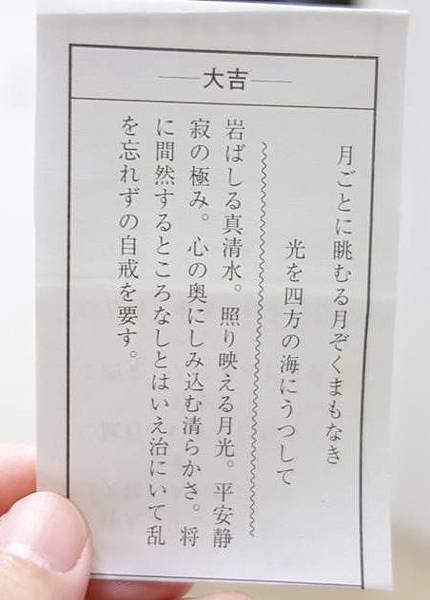 大吉
月ごとに眺むる月ぞくまもなき
光を四方の海にうつして
岩ばしる真清水。照り映える月光。平安静
寂の極み。心の奥にしみ込む清らかさ。将
に間然するところなしとはいえ治にいて乱
を忘れずの自戒を要す。